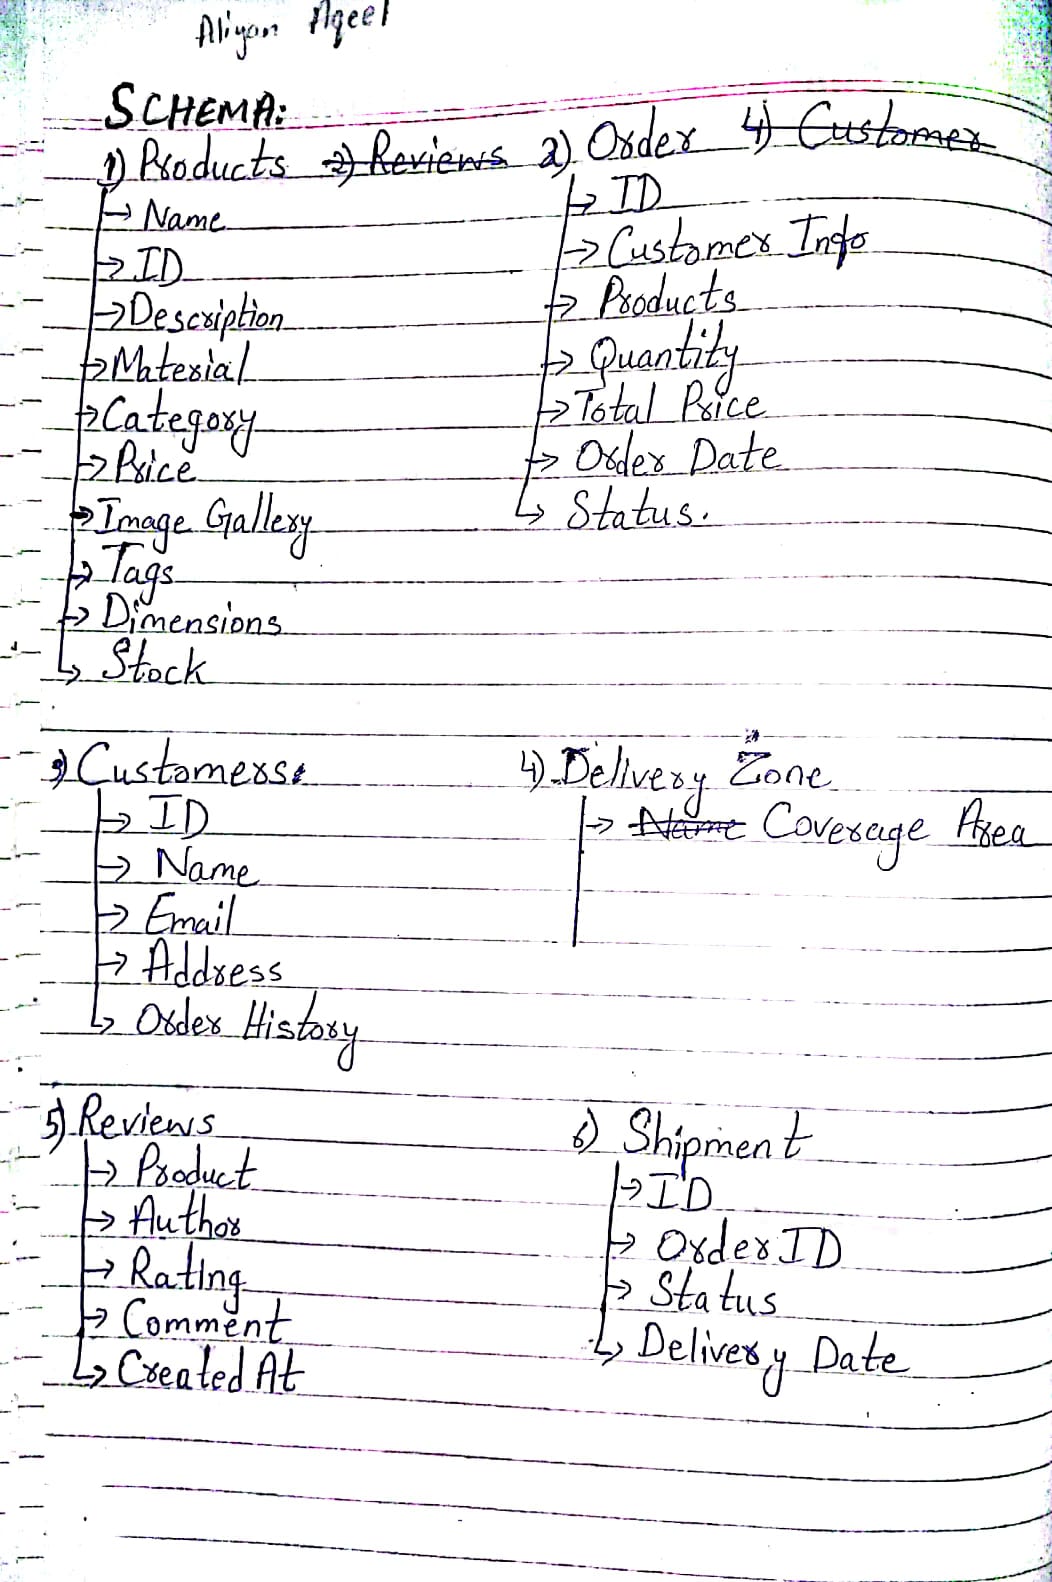 Aliyan Aqeel
SCHEMA:
1) Products 2) Reviews 2) Order 4) Customer
→ Name
→ ID
→ Description
→ Material
→ Category
→ Price
→ Image Gallery
→ Tags
→ Dimensions
→ Stock
→ ID
→ Customer Info
→ Products
→ Quantity
→ Total Price
→ Order Date
→ Status.
3) Customers:
→ ID
→ Name
→ Email
→ Address
→ Order History
4) Delivery Zone
→ Name Coverage Area
5) Reviews
→ Product
→ Author
→ Rating
→ Comment
→ Created At
6) Shipment
→ ID
→ Order ID
→ Status
→ Delivery Date